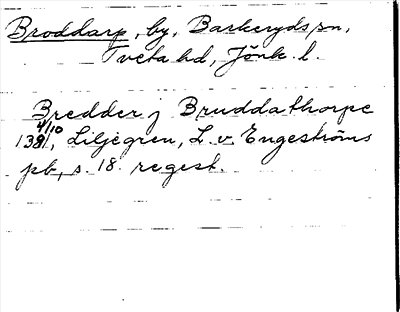 Broddarp, by, Barkeryds sn,
Tveta hd, Jönk. l.
Bredder j Bruddathorpe
4/10
138, Liljegren, L. v. Engeströms
pb, s. 18. regest.